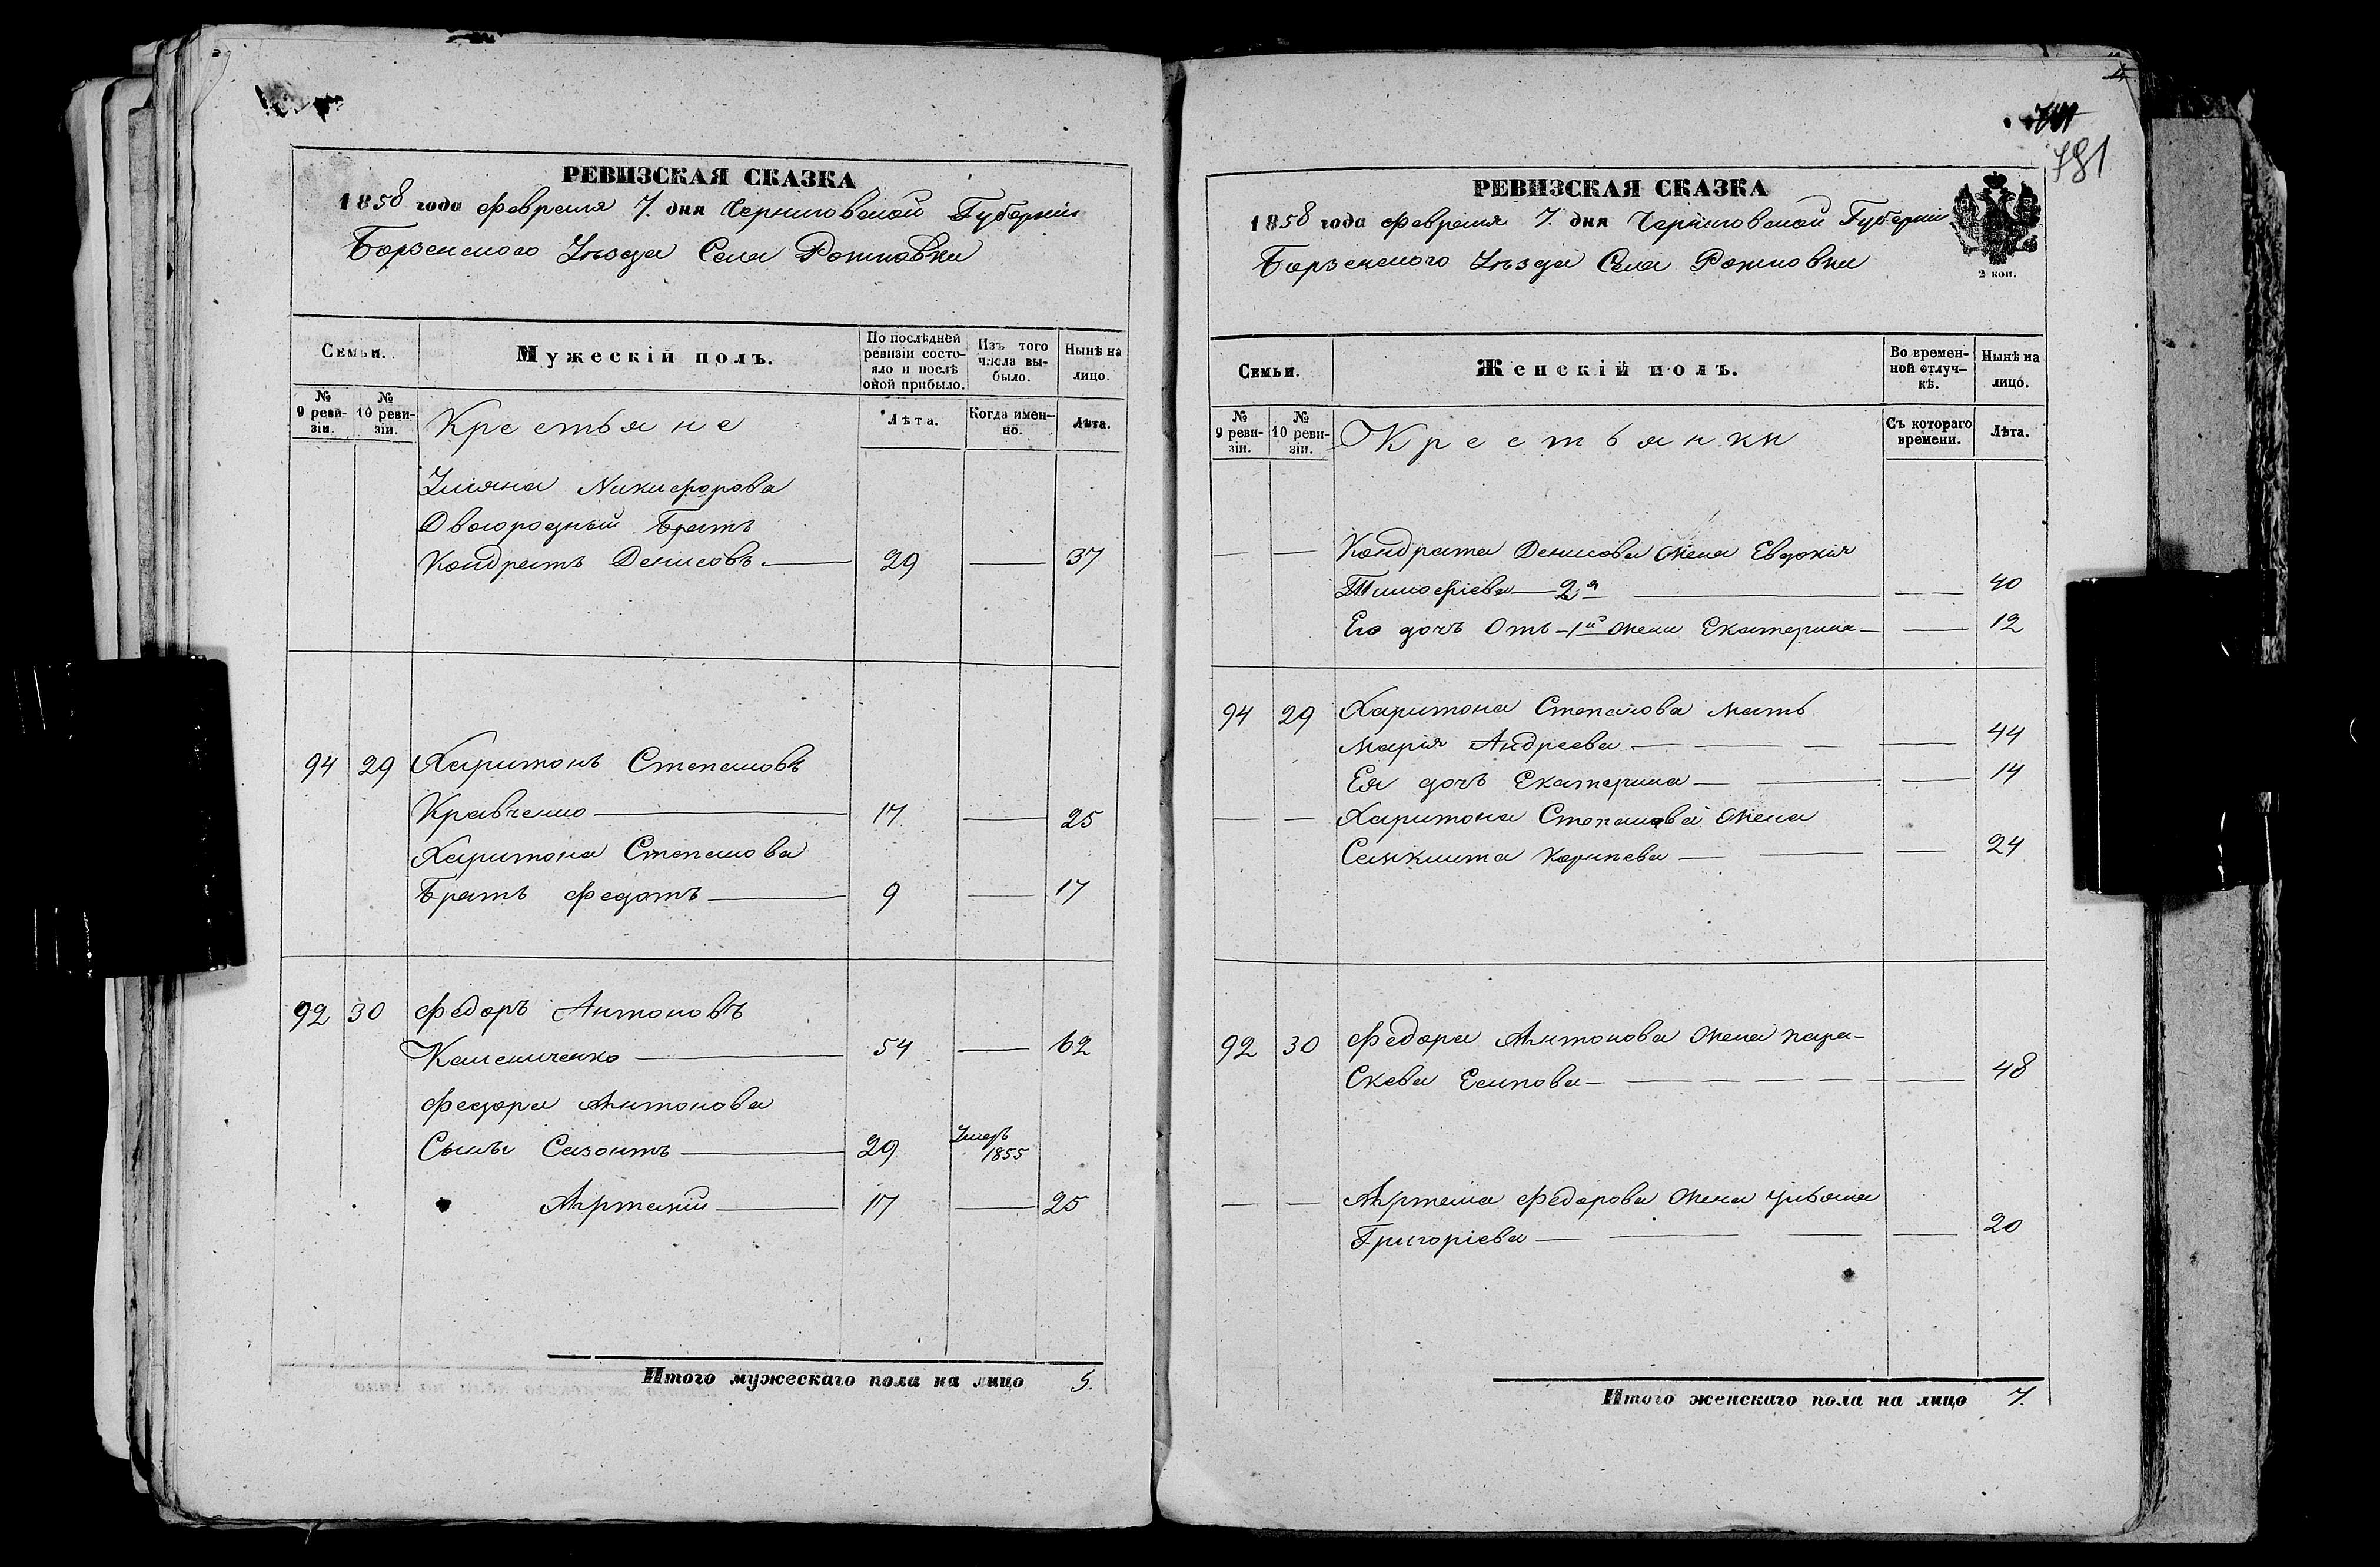 РЕВИЗСКАЯ СКАЗКА
1858 года Февраля 7. дня Черниговской Губерніи
Борзенского Уѣзда Села Рожновки
Семьи.
Мужескій полъ.
По послѣдней ревизіи состояло и послѣ оной прибыло.
Изъ того числа выбыло.
Нынѣ на лицо.
№ 9 ревизіи.
№ 10 ревизіи.
Крестьяне
Лѣта.
Когда именно.
Лѣта.
Никифорова
Двоюродный Братъ
Кондратъ Денисовъ 29 37
94 29 Харитонъ Степановъ
Кравченко 17 25
Харитона Степанова
Братъ Федотъ 9 17
92 30 Федоръ Антоновъ
54 62
Федора Антонова
Сыны Сазонтъ 29 Умеръ 1855
Артемій 17 25
Итого мужескаго пола на лицо 5.
781
РЕВИЗСКАЯ СКАЗКА
1858 года Февраля 7. дня Черниговской Губерніи
Борзенского Уѣзда Села Рожновки
2 коп.
Семьи.
Женскій полъ.
Во временной отлучкѣ.
Нынѣ на лицо.
№ 9 ревизіи.
№ 10 ревизіи.
Крестьянки
Съ котораго времени.
Лѣта.
Кондрата Денисова жена Евдокія
Тимофіева 2я 40
Его дочь Отъ 1й жены Екатерина 12
94 29 Харитона Степанова мать
Марія Андреева 44
Ея дочь Екатерина 14
Харитона Степанова жена
Карпева 24
92 30 Федора Антонова жена Пара-
скева Есипова 48
Артема Федорова жена Ульяна
Григоріева 20
Итого женскаго пола на лицо 7.